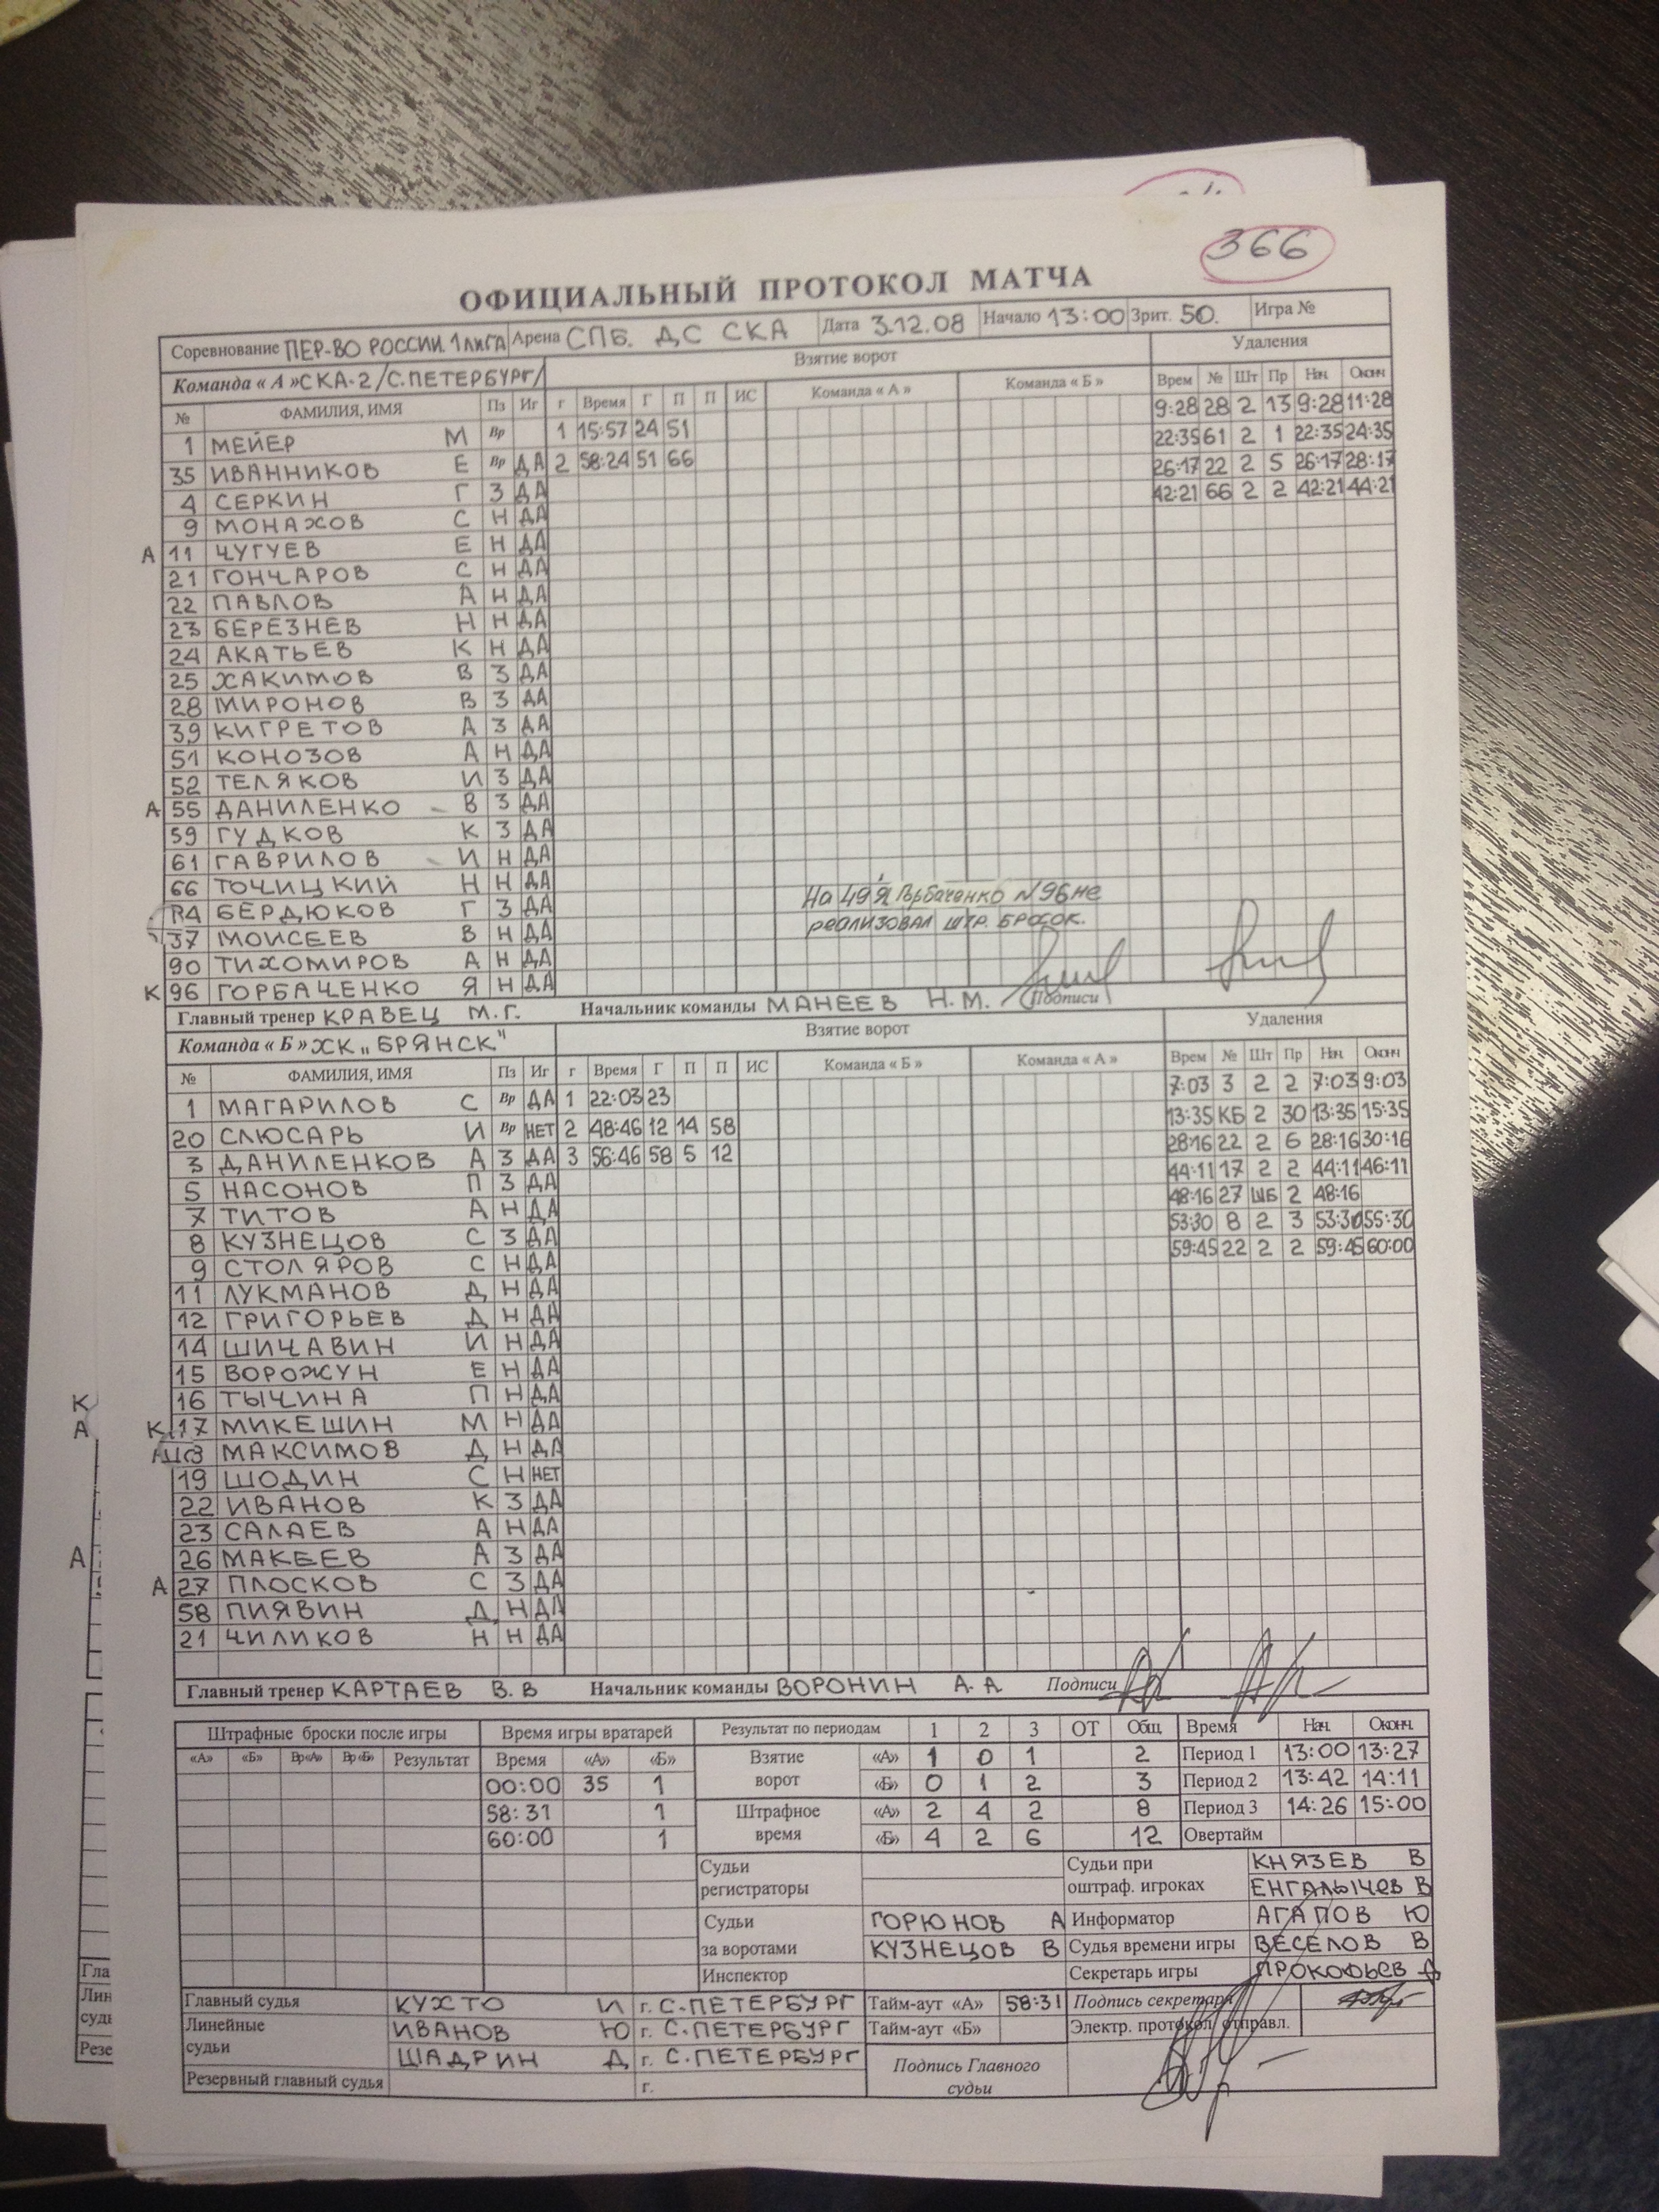 366
ОФИЦИАЛЬНЫЙ ПРОТОКОЛ МАТЧА
Соревнование ПЕР-ВО РОССИИ. 1 ЛИГА Арена СПБ. ДС СКА Дата 3.12.08 Начало 13:00 Зрит. 50. Игра №
Команда « А » СКА-2 /С.ПЕТЕРБУРГ/ Взятие ворот Удаления
№ ФАМИЛИЯ, ИМЯ Пз Иг г Время Г П П ИС Команда « А » Команда « Б » Врем № Шт Пр Нач. Оконч
9:28 28 2 13 9:28 11:28
1 МЕЙЕР М Вр 1 15:57 24 51 22:35 61 2 1 22:35 24:35
35 ИВАННИКОВ Е Вр ДА 2 58:24 51 66 26:17 22 2 5 26:17 28:17
4 СЕРКИН Г З ДА 42:21 66 2 2 42:21 44:21
9 МОНАХОВ С Н ДА
А 11 ЧУГУЕВ Е Н ДА
21 ГОНЧАРОВ С Н ДА
22 ПАВЛОВ А Н ДА
23 БЕРЕЗНЕВ Н Н ДА
24 АКАТЬЕВ К Н ДА
25 ХАКИМОВ В З ДА
28 МИРОНОВ В З ДА
39 КИГРЕТОВ А З ДА
51 КОНОЗОВ А Н ДА
52 ТЕЛЯКОВ И З ДА
А 55 ДАНИЛЕНКО В З ДА
59 ГУДКОВ К З ДА
61 ГАВРИЛОВ И Н ДА
66 ТОЧИЦКИЙ Н Н ДА
БЕРДЮКОВ Г З ДА
37 МОИСЕЕВ В Н ДА
90 ТИХОМИРОВ А Н ДА
К 96 ГОРБАЧЕНКО Я Н ДА
На 49 Я Горбаченко N 96 не
реализовал штр. бросок.
Главный тренер КРАВЕЦ М.Г. Начальник команды МАНЕЕВ Н.М. Подписи
Команда « Б » ХК „БРЯНСК" Взятие ворот Удаления
№ ФАМИЛИЯ, ИМЯ Пз Иг г Время Г П П ИС Команда « Б » Команда « А » Врем № Шт Пр Нач. Оконч
7:03 3 2 2 7:03 9:03
1 МАГАРИЛОВ С Вр ДА 1 22:03 23 13:35 КБ 2 30 13:35 15:35
20 СЛЮСАРЬ И Вр НЕТ 2 48:46 12 14 58 28:16 22 2 6 28:16 30:16
3 ДАНИЛЕНКОВ А З ДА 3 56:46 58 5 12 44:11 17 2 2 44:11 46:11
5 НАСОНОВ П З ДА 48:16 27 ШБ 2 48:16
7 ТИТОВ А Н ДА 53:30 8 2 3 53:30 55:30
8 КУЗНЕЦОВ С З ДА 59:45 22 2 2 59:45 60:00
9 СТОЛЯРОВ С Н ДА
11 ЛУКМАНОВ Д Н ДА
12 ГРИГОРЬЕВ Д Н ДА
14 ШИЧАВИН И Н ДА
15 ВОРОЖУН Е Н ДА
К 16 ТЫЧИНА П Н ДА
А К 17 МИКЕШИН М Н ДА
МАКСИМОВ Д Н ДА
19 ШОДИН С Н НЕТ
22 ИВАНОВ К З ДА
23 САЛАЕВ А Н ДА
А 26 МАКЕЕВ А З ДА
А 27 ПЛОСКОВ С З ДА
58 ПИЯВИН Д Н ДА
21 ЧИЛИКОВ Н Н ДА
Главный тренер КАРТАЕВ В.В Начальник команды ВОРОНИН А.А Подписи
Штрафные броски после игры Время игры вратарей Результат по периодам 1 2 3 ОТ Общ. Время Нач. Оконч.
«А» «Б» Вр«А» Вр«Б» Результат Время «А» «Б» Взятие ворот «А» 1 0 1 2 Период 1 13:00 13:27
00:00 35 1 «Б» 0 1 2 3 Период 2 13:42 14:11
58:31 1 Штрафное время «А» 2 4 2 8 Период 3 14:26 15:00
60:00 1 «Б» 4 2 6 12 Овертайм
Судьи регистраторы Судьи при оштраф. игроках КНЯЗЕВ В
ЕНГАЛЫЧЕВ В
Судьи за воротами ГОРЮНОВ А Информатор АГАПОВ Ю
КУЗНЕЦОВ В Судья времени игры ВЕСЕЛОВ В
Инспектор Секретарь игры ПРОКОФЬЕВ
Главный судья КУХТО И г. С.ПЕТЕРБУРГ Тайм-аут «А» 58:31 Подпись секретаря
Линейные судьи ИВАНОВ Ю г. С.ПЕТЕРБУРГ Тайм-аут «Б» Электр. протокол отправл.
ШАДРИН Д г. С.ПЕТЕРБУРГ Подпись Главного судьи
Резервный главный судья г.